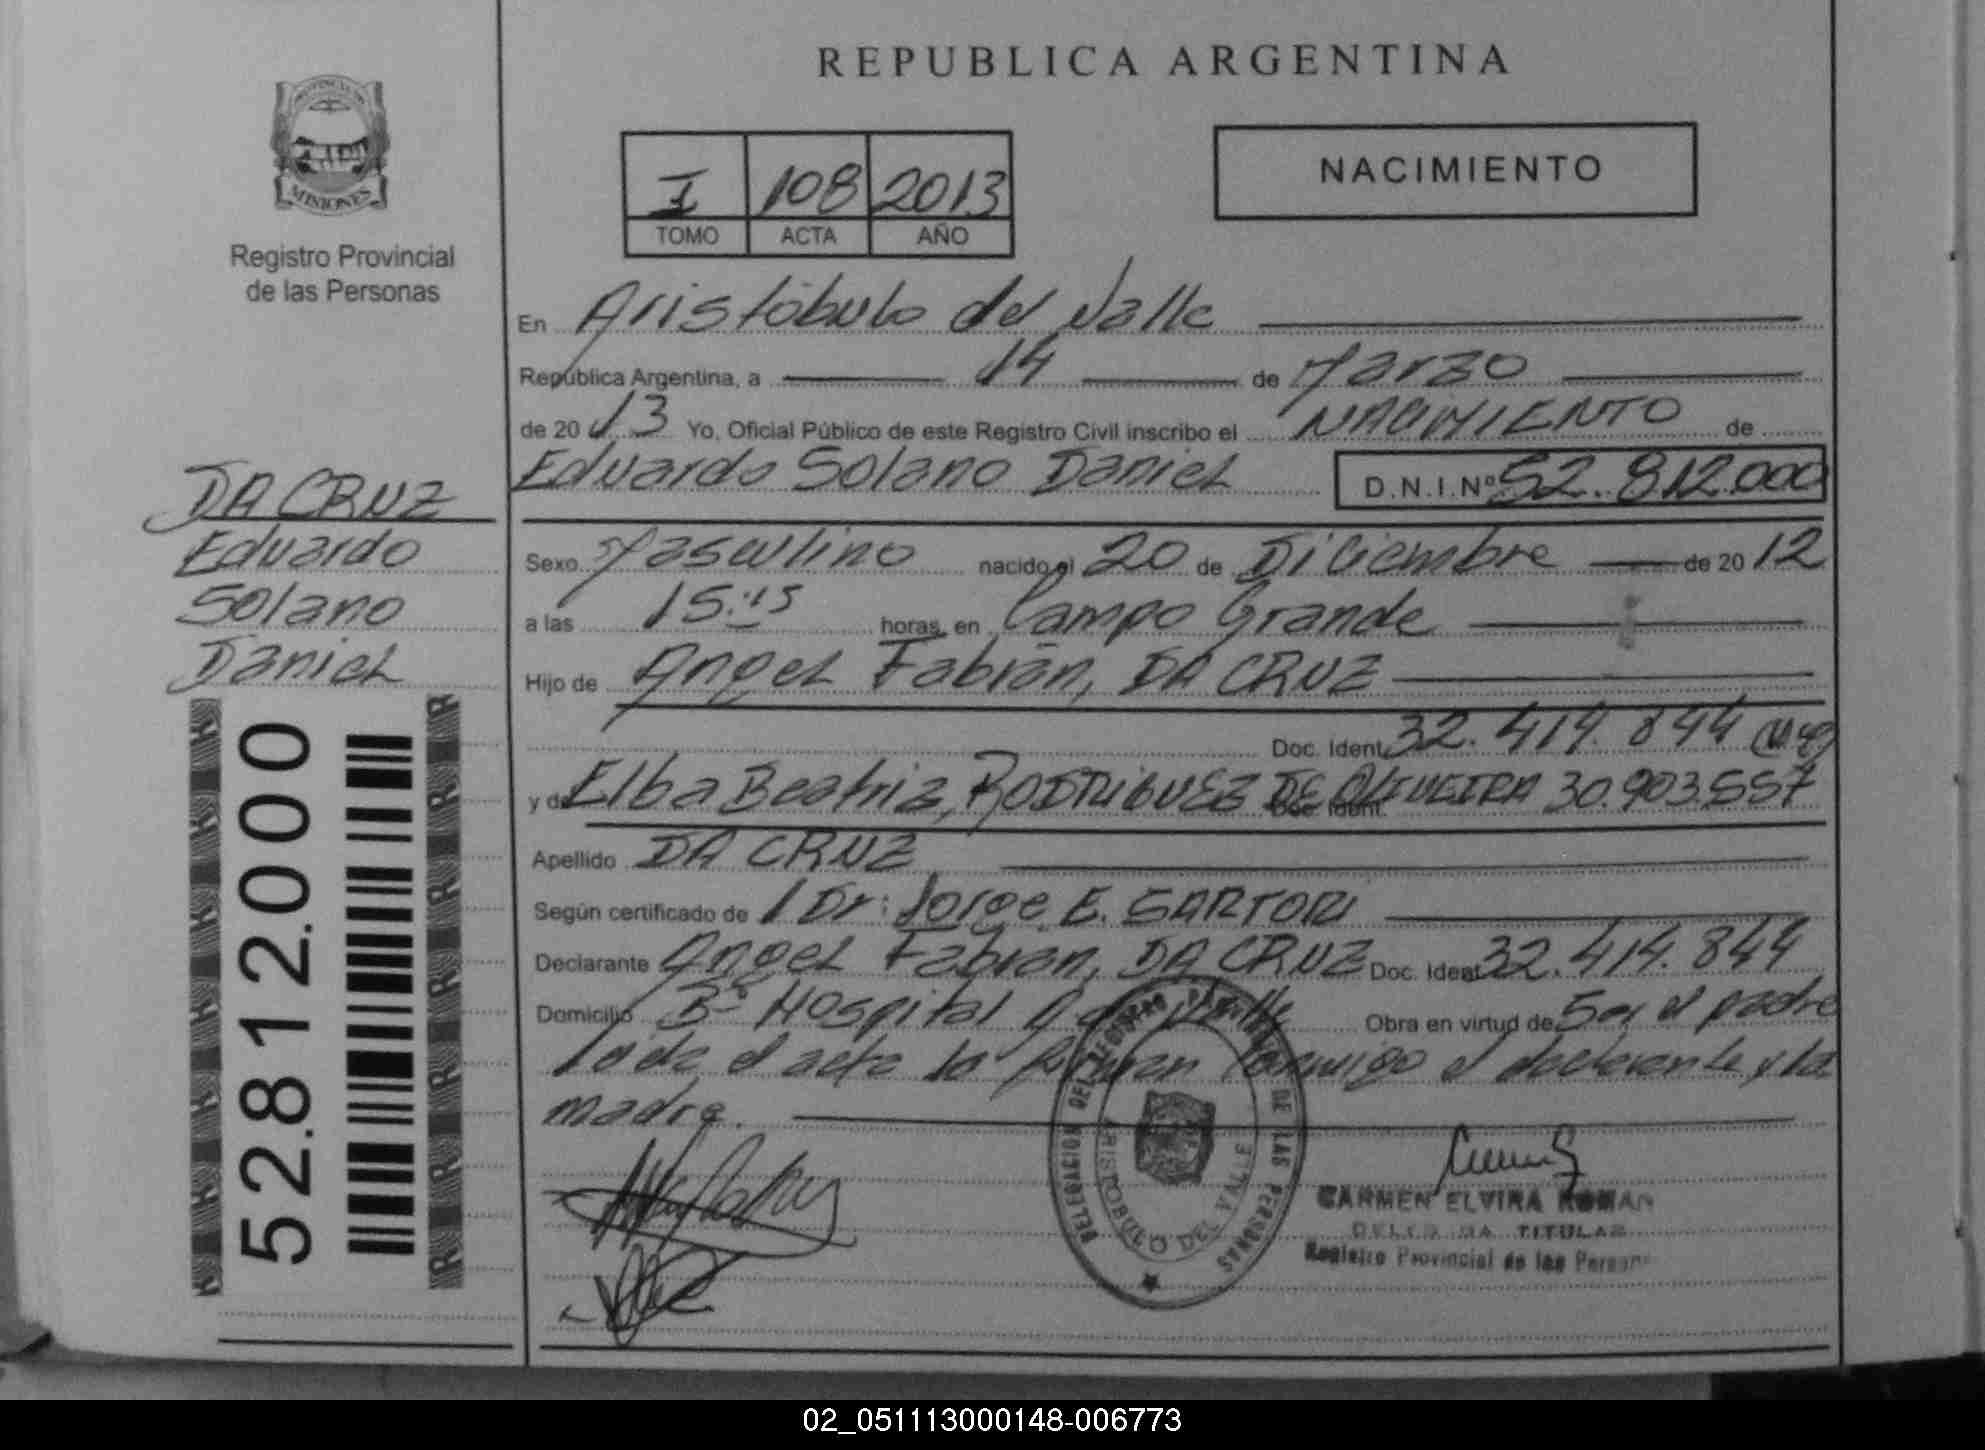 REPUBLICA ARGENTINA
PROVINCIA DE
MISIONES
Registro Provincial
de las Personas
I 108 2013
TOMO ACTA AÑO
NACIMIENTO
En Aristóbulo del Valle
República Argentina, a 14 de Marzo
de 20 13 Yo, Oficial Público de este Registro Civil inscribo el NACIMIENTO de
Eduardo Solano Daniel D.N.I.Nº 52.812.000
DA CRUZ
Eduardo
Solano
Daniel
52.812.000
Sexo Masculino nacido el 20 de Diciembre de 20 12
a las 15:15 horas, en Campo Grande
Hijo de Angel Fabián, DA CRUZ
Doc. Ident. 32.414.844
y de Elba Beatriz, RODRIGUEZ DE OLIVEIRA 30.903.557
Doc. Ident.
Apellido DA CRUZ
Según certificado de 1 Dr: Jorge E. SARTORI
Declarante Angel Fabián, DA CRUZ Doc. Ident. 32.414.844
Domicilio Bº Hospital Valle Obra en virtud de Ser el padre
Leída el acta la firman conmigo el declarante y la
madre.
DELEGACION DEL REGISTRO DE LAS PERSONAS
ARISTOBULO DEL VALLE
CARMEN ELVIRA ROMAN
TITULAR
Registro Provincial de las Person
02_051113000148-006773